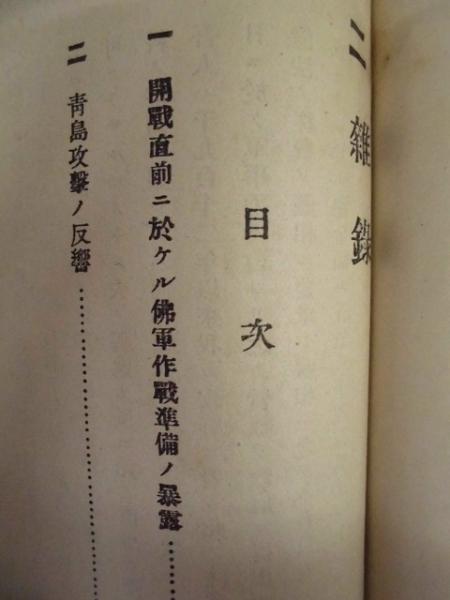 二 雜錄
目次
一 開戰直前ニ於ケル佛軍作戰準備ノ暴露………
二 靑島攻擊ノ反響………………